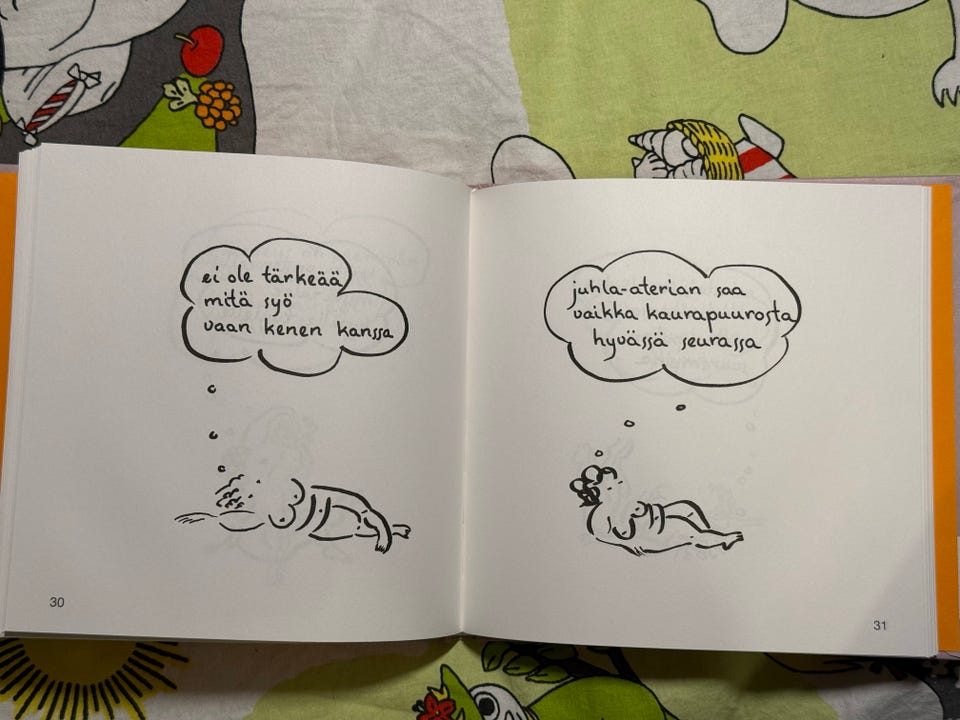 ei ole tärkeää
mitä syö
vaan kenen kanssa
30
juhla-aterian saa
vaikka kaurapuurosta
hyvässä seurassa
31